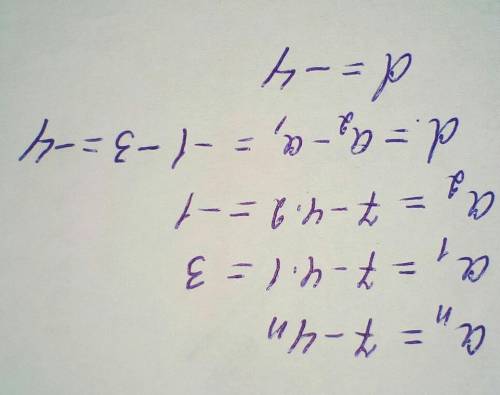 aₙ = 7 - 4n
a₁ = 7 - 4·1 = 3
a₂ = 7 - 4·2 = -1
d = a₂ - a₁ = -1 - 3 = -4
d = -4